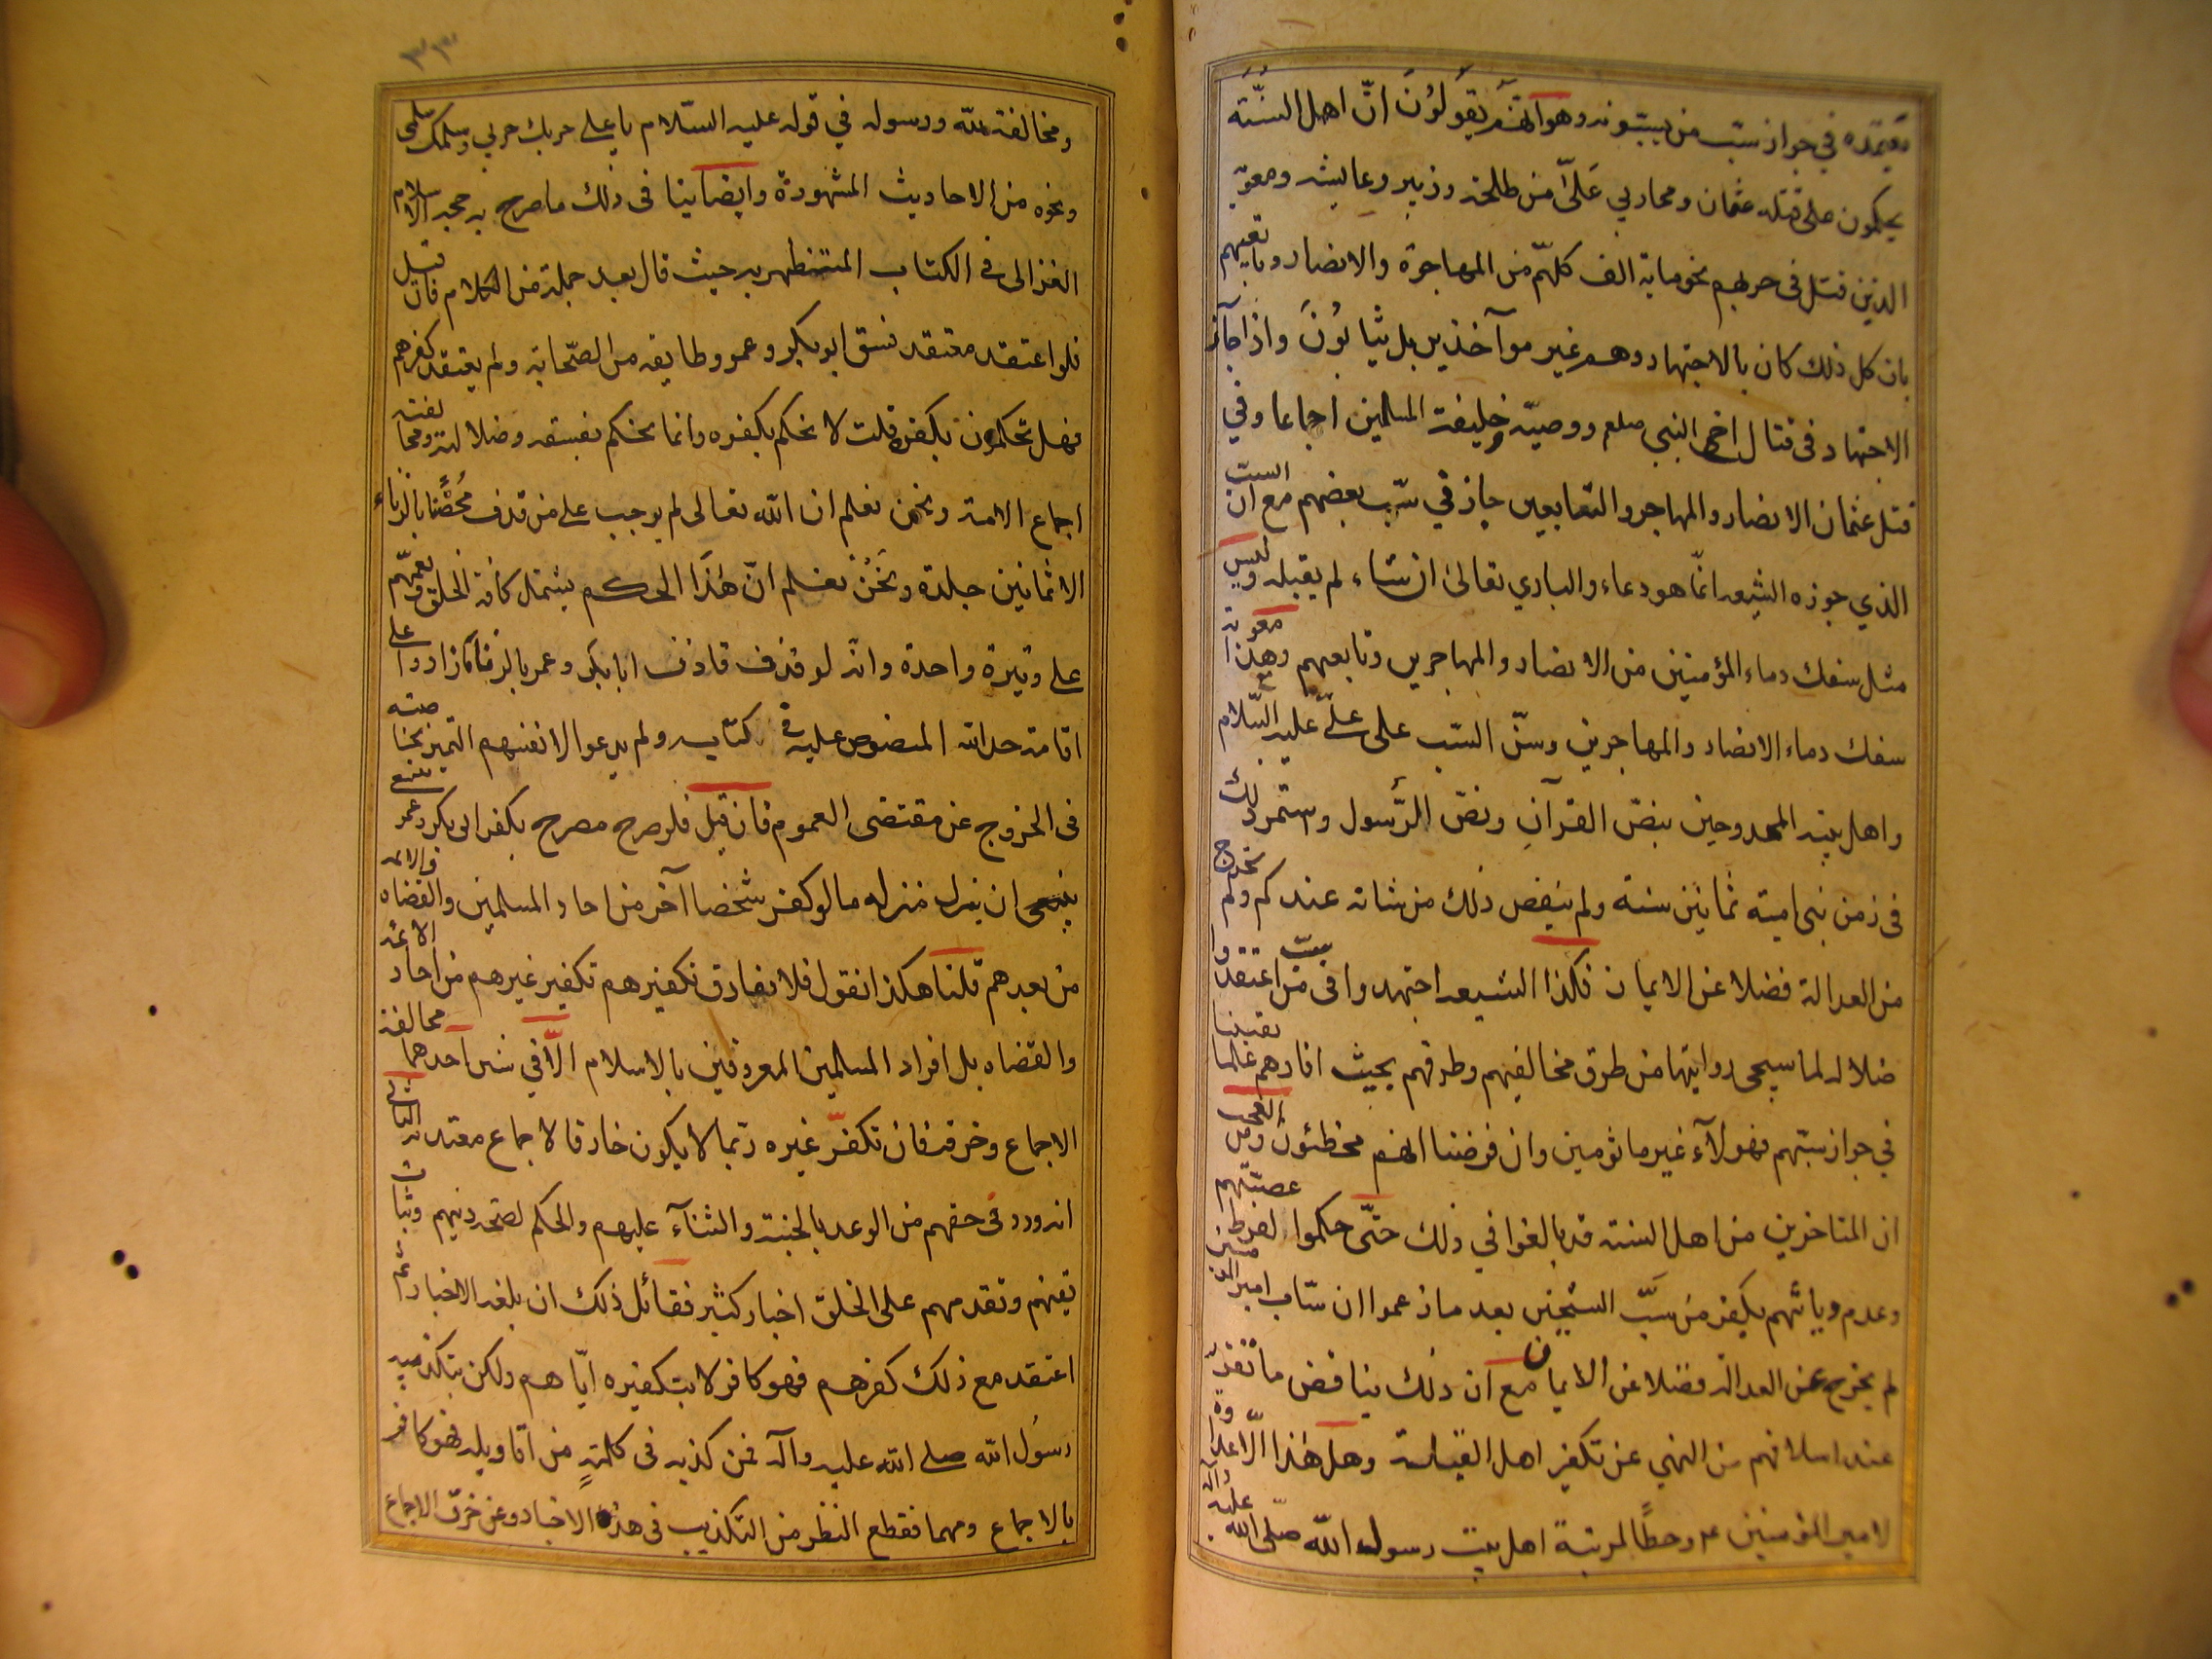 نعتمده في جواز سبّ من يسبّونه وهو انّهم يقولون انّ اهل السنّة
يحكمون على قتلة عثمان ومحاربي عليّا من طلحة وزبير وعايشه ومعوية
الذين قتل فى حربهم نحو ماية الف كلهم من المهاجرة والانصار وتابعيهم
بان كل ذلك كان بالاجتهاد وهم غير موآخذين بل يثابون واذا جاز
الاجتهاد فى قتال اخى النبي صلعم ووصيّه وخليفة المسلمين اجماعا وفي
قتل عثمان الانصار والمهاجر والتابعين جاز في سبّ بعضهم مع ان السبّ
الذي جوزه الشيعه انّما هو دعاء والباري تعالى ان شاء لم يقبله وليس
مثل سفك دماء المؤمنين من الانصار والمهاجرين وتابعيهم وهذا معوية
سفك دماء الانصار والمهاجرين وسنّ السبّ على عليّ عليه السّلام
واهل بيته الممدوحين بنصّ القرآن ونصّ الرّسول واستمر ذلك
فى زمن بنى امية ثمانين سنة ولم ينقص ذلك من شانه عندكم ولم يخرج
من العدالة فضلا عن الايمان فكذا الشيعه اجتهدوا فى سبّ من اعتقدوا
ضلاله لما سيجى روايتها من طرق مخالفيهم وطرقهم بحيث افادهم علما يقينيا
في جواز سبّهم فهولآء غير ماثومين وان فرضنا انهم مخطئون ومن العجب
ان المتاخرين من اهل السنة قد بالغوا في ذلك حتّى حكموا لفرط عصبيّتهم
وعدم ديانتهم بكفر من سبّ الشيخين بعد ما زعموا ان سابّ امير المؤمنين
لم يخرج عن العدالة فضلا عن الايمان مع ان ذلك يناقض ما تقرّر
عند اسلافهم من النهي عن تكفير اهل القبلة وهل هذا الّا عداوة
لامير المؤمنين ع وحطًّا لمرتبة اهل بيت رسول الله صلّى الله عليه وآله
٣٣
ومخالفة لله ورسوله في قوله عليه السّلام يا علي حربك حربي وسلمك سلمي
ونحوه من الاحاديث المشهورة وايضا ينا فى ذلك ما صرح به حجه الاسلام
الغزالى فى الكتاب المستظهريه حيث قال بعد جملة من الكلام فان قيل
فلو اعتقد معتقد فسق ابو بكر وعمر وطايفه من الصّحابة ولم يعتقد كفرهم
فهل تحكمون بكفره قلت لا نحكم بكفره وانما نحكم بفسقه وضلالته ومخالفته
اجماع الامة ونحن نعلم ان الله تعالى لم يوجب على من قذف مُحصنًا بالزناء
الا ثمانين جلدة ونحن نعلم انّ هذا الحكم يشمل كافة الخلق ويعمّهم
على وتيرة واحدة وانه لو قذف قاذف ابا بكر وعمر بالزنا ما زادوا على
اقامة حد الله المنصوص عليه في كتابه ولم يدعوا لانفسهم التميز بخاصّته
فى الخروج عن مقتضى العموم فان قيل فلو صرح مصرح بكفر ابو بكر وعمر
ينبغى ان ينزل منزله ما لو كفر شخصا آخر من احاد المسلمين والقضاه والائمه
من بعدهم قلنا هكذا نقول فلا نفارق تكفيرهم تكفير غيرهم من احاد الائمه
والقضاه بل افراد المسلمين المعروفين بالاسلام الّا في شيئين احدهما مخالفة
الاجماع وخرقه فان تكفّر غيره ربّما لا يكون خارقا لاجماع معتد به الثانى
انه ورد فى حقهم من الوعد بالجنة والثنآء عليهم والحكم لصحه دينهم وثبات
يقينهم وتقدمهم على الخلق اخبار كثير فقائل ذلك ان بلغه الاخبار ثم
اعتقد مع ذلك كفرهم فهو كافر لا بتكفيره ايّاهم ولكن بتكذيبه
رسُول الله صلى الله عليه وآله فمن كذبه فى كلمة من اقاويله فهو كافر
بالاجماع ومهما فقطع النظر من التكذيب فى هذه الاخبار وعن خرق الاجماع